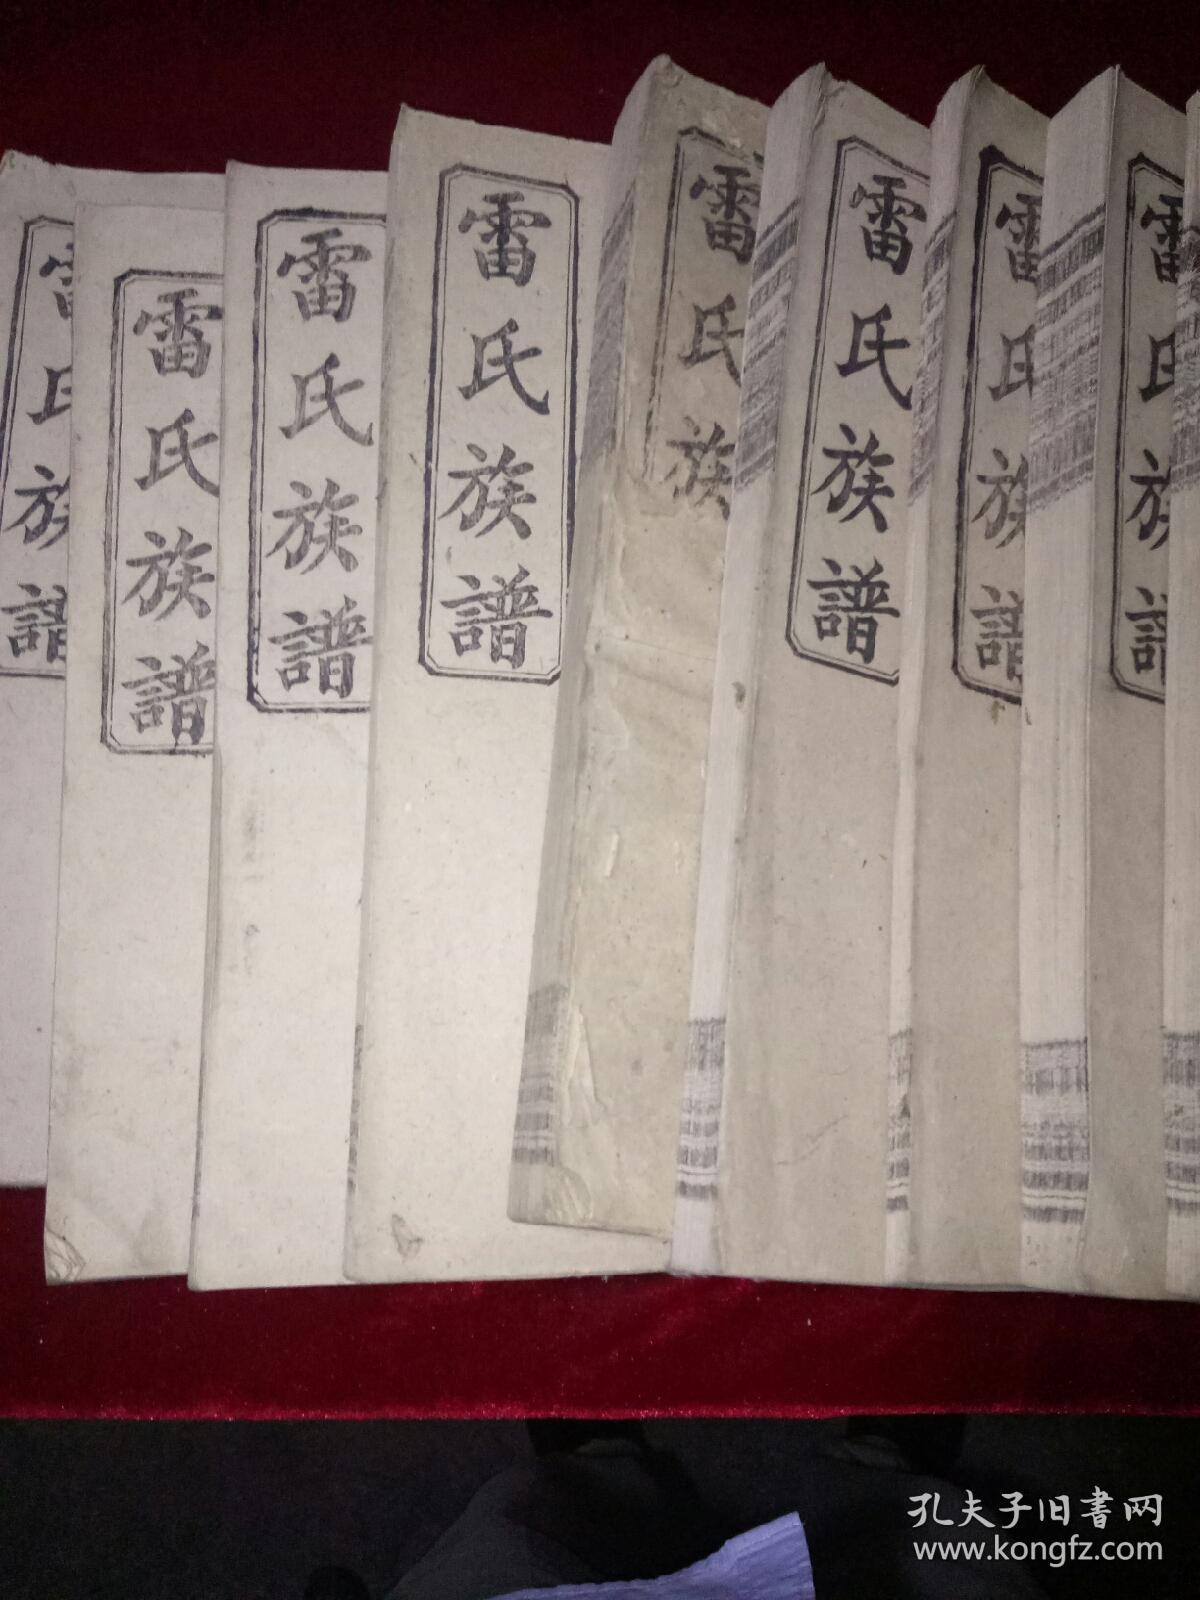 雷氏族譜
雷氏族譜
雷氏族譜
雷氏族譜
雷氏族
雷氏族譜
雷氏族譜
雷氏族譜
孔夫子旧書网
www.kongfz.com